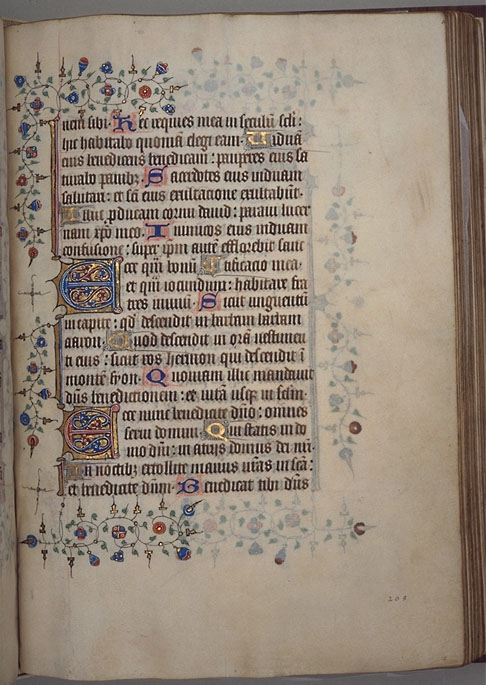 nem sibi · Hec requies mea in seculum seli :
hic habitabo quoniam elegi eam · Viduam
eius benedicens benedicam : pauperes eius sa
turabo panibȝ Sacerdotes eius induam
salutari : et sci eius exultacione exultabunt ·
Illuc producam cornu dauid : paraui lucer
nam xpo meo · Inimicos eius induam
confusione : super ipm autem efflorebit sanc
Ecce qm bonum Iustificacio mea ·
et qm iocundum : habitare fra
tres in unum · Sicut unguentum
in capite : qd descendit in barbam barbam
aaron · Quod descendit in ora uestimen
ti eius : sicut ros hermon qui descendit i
montem syon · Quoniam illic mandauit
dns benedictionem : et uitam usqȝ in seclm
Ecce nunc benedicite dno : omnes
serui domini · Qui statis in do
mo dni : in atrijs domus dei nri ·
In noctibȝ extollite manus uras in sca :
et benedicite dnm · Benedicat tibi dns